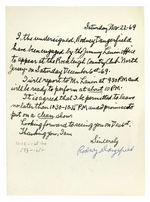 Saturday, Nov. 22-69
I, the undersigned, Rodney Dangerfield
have been engaged by the Jimmy Lunin Office
to appear at the Rockleigh Country Club North
Jersey on Saturday December 6th-69.
I will report to Mr. Lunin at 9:30 PM and
will be ready to perform at about 10 PM.
It is agreed that I be permitted to leave
no later than 10:30-10:45 PM and I promise to
put on a clean show.
Looking forward to seeing you on Dec 6th.
Thanking you, I am
Sincerely
Rodney Dangerfield